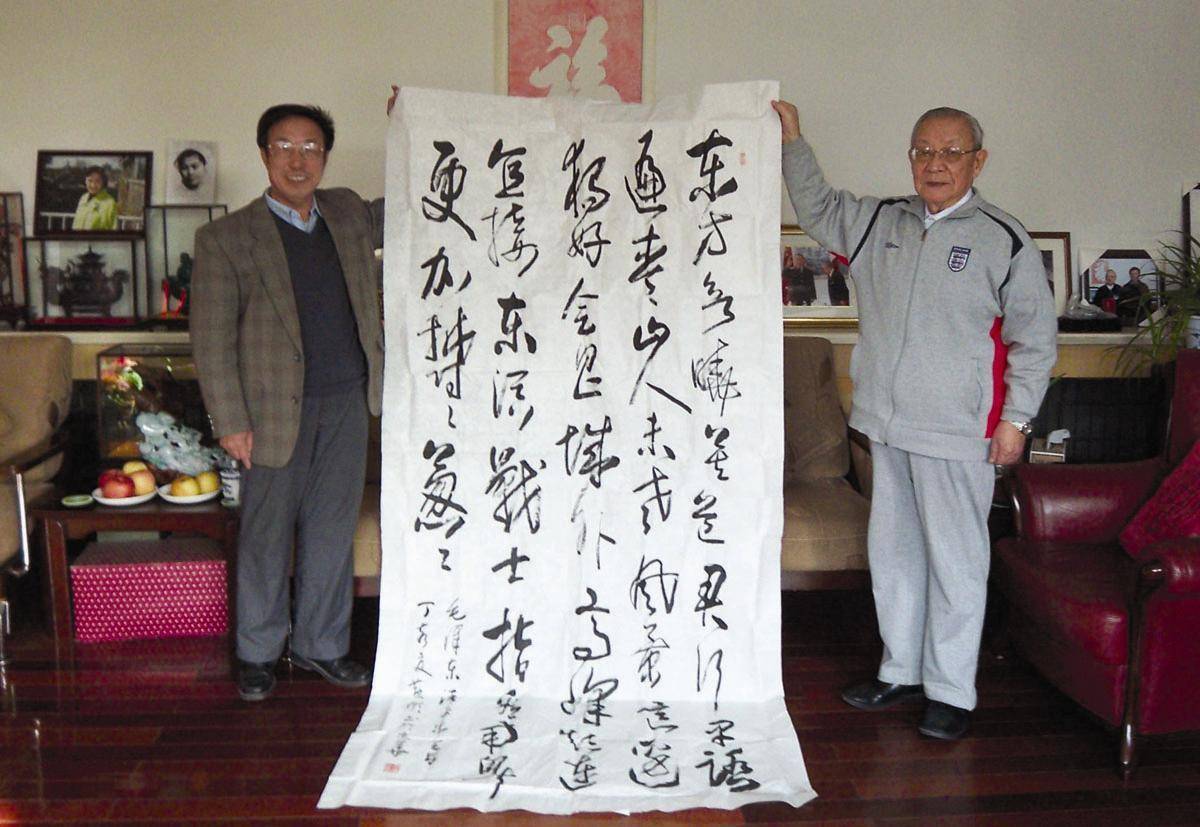 福
东方欲曉莫道君行早踏
遍青山人未老风景这边
独好会昌城外高峰颠连
直接东溟戰士指看南粤
更加郁々葱々
毛泽东词清平乐会昌
丁亥夏